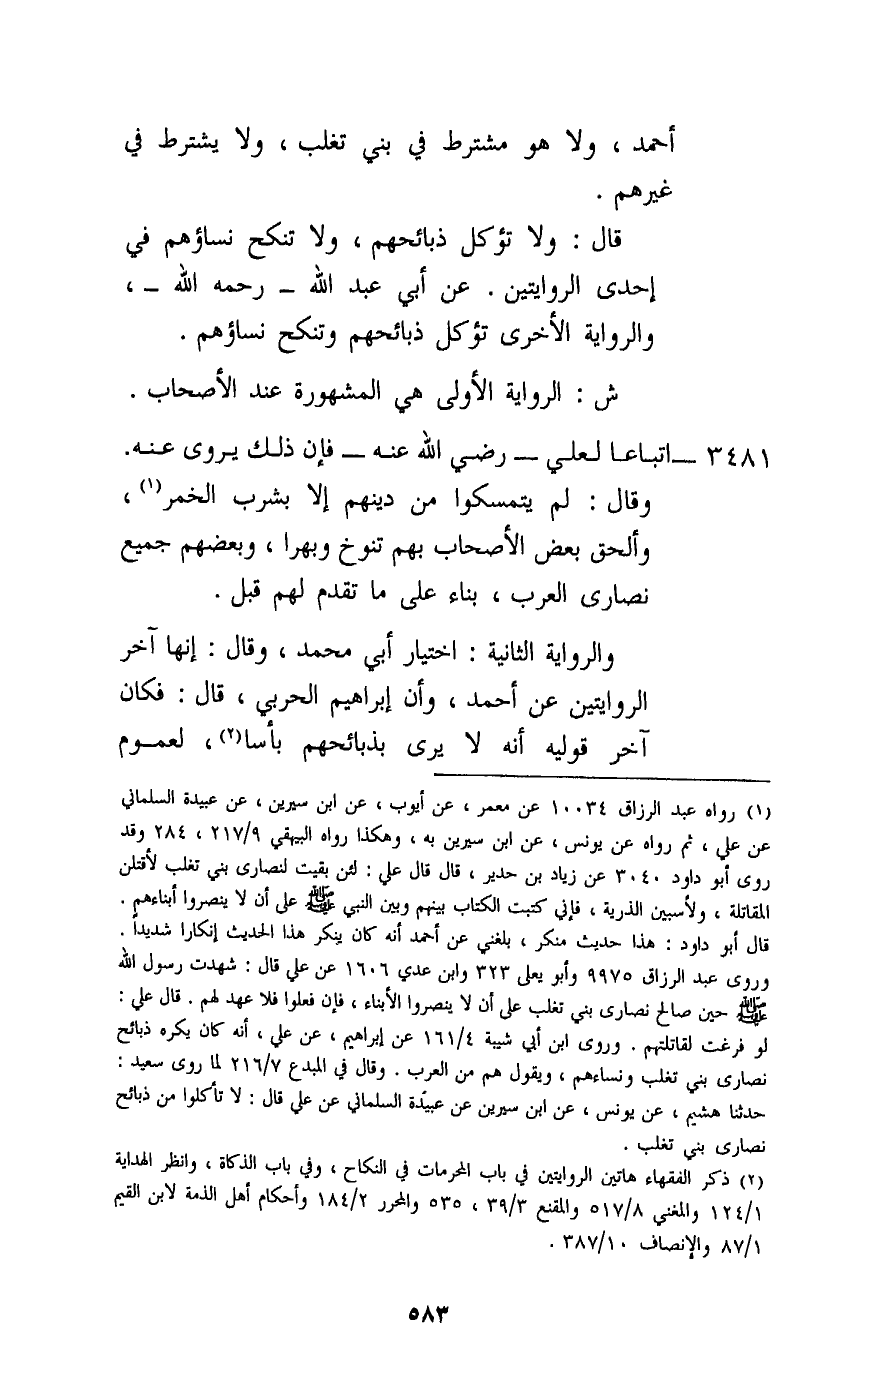 أحمد ، ولا هو مشترط في بني تغلب ، ولا يشترط في
غيرهم .
قال : ولا تؤكل ذبائحهم ، ولا تنكح نساؤهم في
إحدى الروايتين . عن أبي عبد الله ــ رحمه الله ــ ،
والرواية الأخرى تؤكل ذبائحهم وتنكح نساؤهم .
ش : الرواية الأولى هي المشهورة عند الأصحاب .
٣٤٨١ ــ اتباعا لعلي ــ رضي الله عنه ــ فإن ذلك يروى عنه.
وقال : لم يتمسكوا من دينهم إلا بشرب الخمر(١) ،
وألحق بعض الأصحاب بهم تنوخ وبهرا ، وبعضهم جميع
نصارى العرب ، بناء على ما تقدم لهم قبل .
والرواية الثانية : اختيار أبي محمد ، وقال : إنها آخر
الروايتين عن أحمد ، وأن إبراهيم الحربي ، قال : فكان
آخر قوليه أنه لا يرى بذبائحهم بأسا(٢) ، لعموم
(١) رواه عبد الرزاق ١٠٠٣٤ عن معمر ، عن أيوب ، عن ابن سيرين ، عن عبيدة السلماني
عن علي ، ثم رواه عن يونس ، عن ابن سيرين به ، وهكذا رواه البيهقي ٢١٧/٩ ، ٢٨٤ وقد
روى أبو داود ٣٠٤٠ عن زياد بن حدير ، قال قال علي : لئن بقيت لنصارى بني تغلب لأقتلن
المقاتلة ، ولأسبين الذرية ، فإني كتبت الكتاب بينهم وبين النبي ﷺ على أن لا ينصروا أبناءهم .
قال أبو داود : هذا حديث منكر ، بلغني عن أحمد أنه كان ينكر هذا الحديث إنكارا شديداً .
وروى عبد الرزاق ٩٩٧٥ وأبو يعلى ٣٢٣ وابن عدي ١٦٠٦ عن علي قال : شهدت رسول الله
ﷺ حين صالح نصارى بني تغلب على أن لا ينصروا الأبناء ، فإن فعلوا فلا عهد لهم . قال علي :
لو فرغت لقاتلتهم . وروى ابن أبي شيبة ١٦١/٤ عن إبراهيم ، عن علي ، أنه كان يكره ذبائح
نصارى بني تغلب ونساءهم ، ويقول هم من العرب . وقال في المبدع ٢١٦/٧ لما روى سعيد :
حدثنا هشيم ، عن يونس ، عن ابن سيرين عن عبيّدة السلماني عن علي قال : لا تأكلوا من ذبائح
نصارى بني تغلب .
(٢) ذكر الفقهاء هاتين الروايتين في باب المحرمات في النكاح ، وفي باب الذكاة ، وانظر الهداية
١٢٤/١ والمغني ٥١٧/٨ والمقنع ٣٩/٣ ، ٥٣٥ والمحرر ١٨٤/٢ وأحكام أهل الذمة لابن القيم
٨٧/١ والإنصاف ٣٨٧/١٠ .
٥٨٣